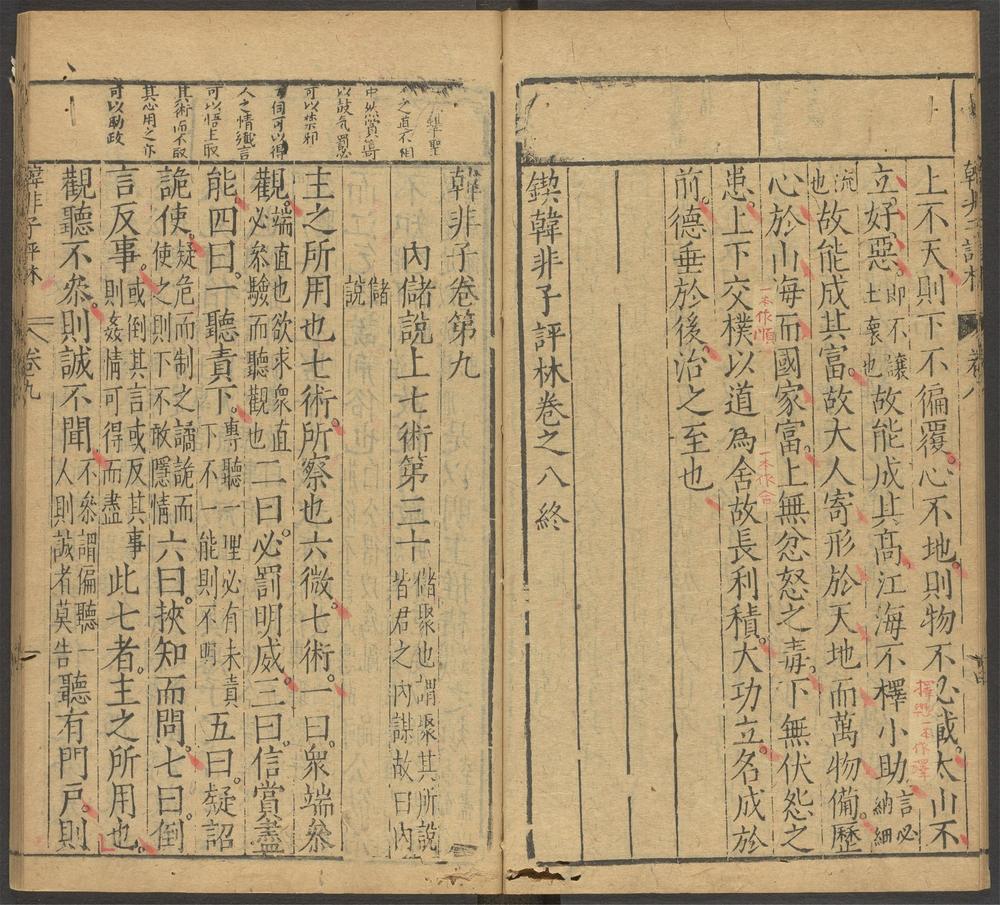 上不天則下不偏覆。心不地則物不必載。太山不
立好惡。即不讓土壤也故能成其高江海不檡小助言必納細
流也故能成其富。故大人寄形於天地而萬物備。歷
心於山海而國家富。上無忿怒之毒。下無伏怨之
一本作順
患。上下交樸以道為舍故長利積。大功立。名成於
一本作合
前。德垂於後。治之至也
鍥韓非子評林卷之八終
韓非子卷第九
內儲說上七術第三十儲聚也謂聚其所說皆君之內謀故曰內
儲說
主之所用也七術。所察也六微。七術。一曰。衆端參
觀。端直也欲求衆直必參驗而聽觀也二曰。必罰明威。三曰。信賞盡
能。四曰。一聽責下。專聽一理必有未責下不一能則不明五曰。疑詔
詭使。疑危而制之譎詭而使之則下不敢隱情六曰。挾知而問。七曰。倒
言反事。或倒其言或反其事則姦情可得而盡此七者。主之所用也。
觀聽不參。則誠不聞。不參謂偏聽一人則誠者莫告聽有門戶。則
可以禁邪
人之情纖言
可以悟上取
其術而不取
其心用之亦
可以助政
韓非子評林
卷九